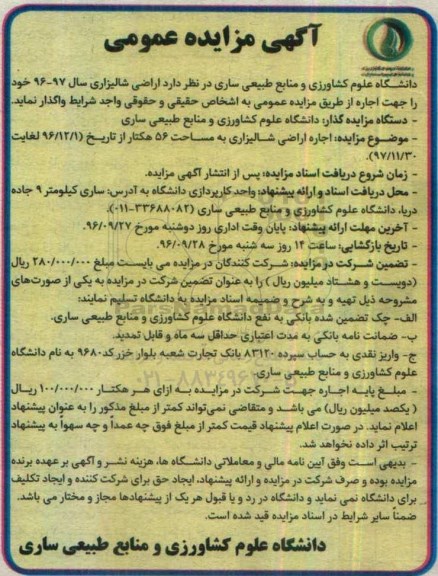 آگهی مزایده عمومی
دانشگاه علوم کشاورزی و منابع طبیعی ساری در نظر دارد اراضی شالیزاری سال ۹۷-۹۶ خود
را جهت اجاره از طریق مزایده عمومی به اشخاص حقیقی و حقوقی واجد شرایط واگذار نماید.
- دستگاه مزایده گذار: دانشگاه علوم کشاورزی و منابع طبیعی ساری
- موضوع مزایده: اجاره اراضی شالیزاری به مساحت ۵۶ هکتار از تاریخ (۹۶/۱۲/۱ لغایت
۹۷/۱۱/۳۰).
- زمان شروع دریافت اسناد مزایده: پس از انتشار آگهی مزایده.
- محل دریافت اسناد و ارائه پیشنهاد: واحد کارپردازی دانشگاه به آدرس: ساری کیلومتر ۹ جاده
دریا، دانشگاه علوم کشاورزی و منابع طبیعی ساری (۳۳۶۸۸۰۸۲-۰۱۱)
- آخرین مهلت ارائه پیشنهاد: پایان وقت اداری روز دوشنبه مورخ ۹۶/۰۹/۲۷.
- تاریخ بازگشایی: ساعت ۱۴ روز سه شنبه مورخ ۹۶/۰۹/۲۸.
- تضمین شرکت در مزایده: شرکت کنندگان در مزایده می بایست مبلغ ۲۸۰/۰۰۰/۰۰۰ ریال
(دویست و هشتاد میلیون ریال ) را به عنوان تضمین شرکت در مزایده به یکی از صورت‌های
مشروحه ذیل تهیه و به شرح و ضمیمه اسناد مزایده به دانشگاه تسلیم نمایند:
الف- چک تضمین شده بانکی به نفع دانشگاه علوم کشاورزی و منابع طبیعی ساری.
ب- ضمانت نامه بانکی به مدت اعتباری حداقل سه ماه و قابل تمدید.
ج- واریز نقدی به حساب سپرده ۸۳۱۲۰ بانک تجارت شعبه بلوار خزر کد ۹۶۸۰ به نام دانشگاه
علوم کشاورزی و منابع طبیعی ساری.
- مبلغ پایه اجاره جهت شرکت در مزایده به ازای هر هکتار ۱۰۰/۰۰۰/۰۰۰ ریال
( یکصد میلیون ریال) می باشد و متقاضی نمی‌تواند کمتر از مبلغ مذکور را به عنوان پیشنهاد
اعلام نماید. در صورت اعلام پیشنهاد قیمت کمتر از مبلغ فوق چه عمداً و چه سهواً به پیشنهاد
ترتیب اثر داده نخواهد شد.
- بدیهی است وفق آیین نامه مالی و معاملاتی دانشگاه ها، هزینه نشر و آگهی بر عهده برنده
مزایده بوده و صرف شرکت در مزایده و ارائه پیشنهاد، ایجاد حق برای شرکت کننده و ایجاد تکلیف
برای دانشگاه نمی نماید و دانشگاه در رد و یا قبول هر یک از پیشنهادها مجاز و مختار می باشد.
ضمناً سایر شرایط در اسناد مزایده قید شده است.
دانشگاه علوم کشاورزی و منابع طبیعی ساری